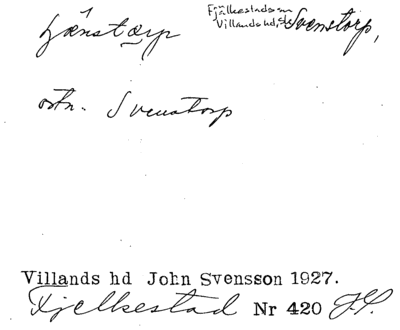 Fjälkestads sn
Villands hd, Sk. Svenstorp,
ortn. Svenstorp
Villands hd John Svensson 1927.
Fjelkestad Nr 420 J.S.